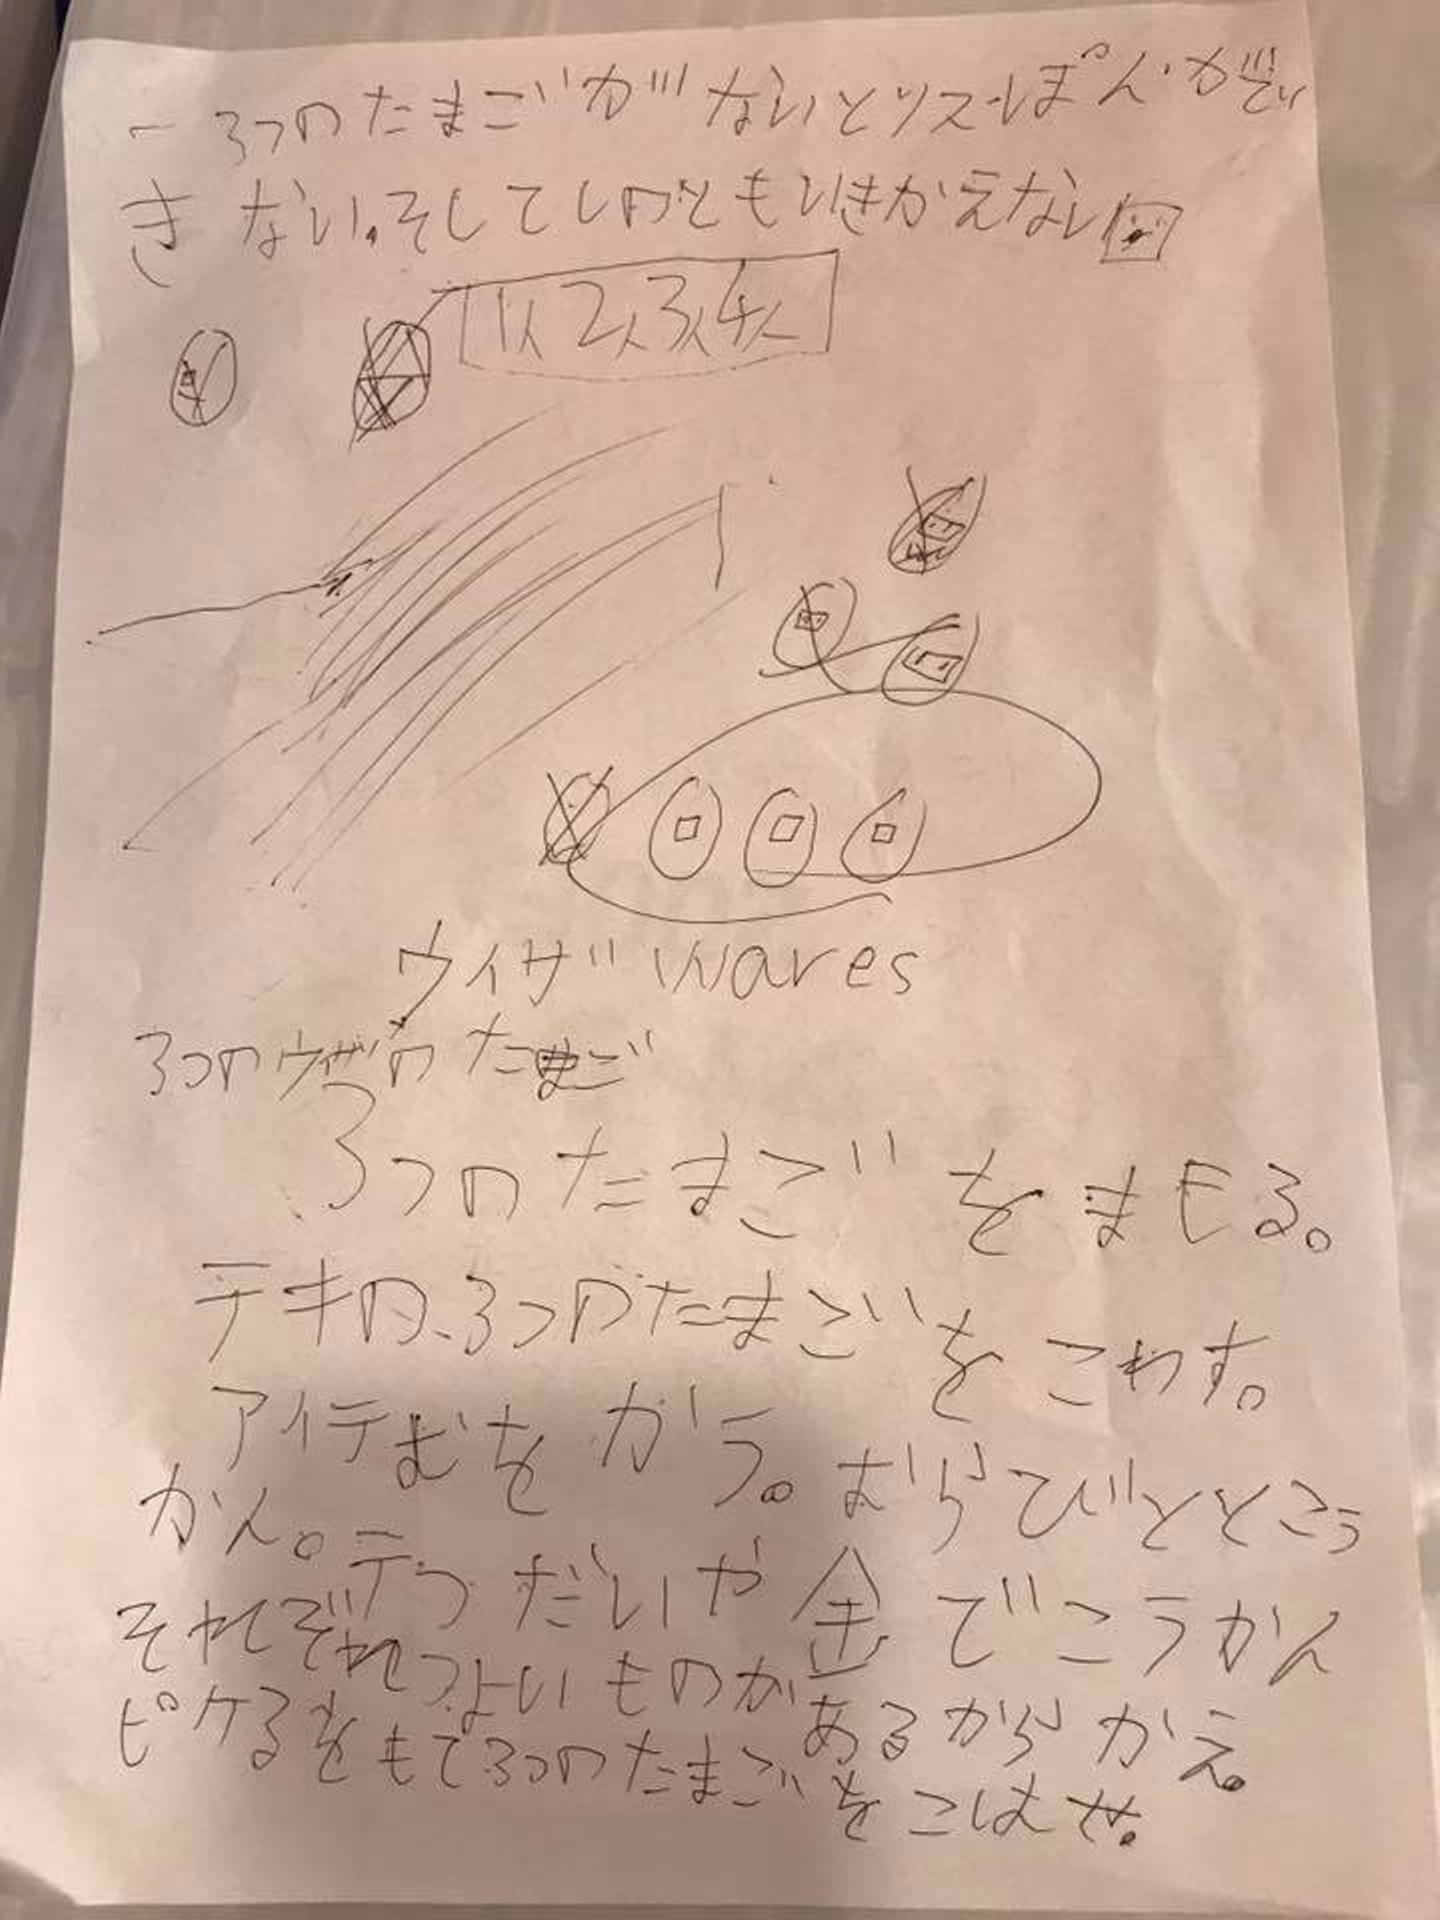 3つのたまごがないとリスーぽんがで
きない。そしていのちともいきかえない
1人 2人 3人 4人
ウィザ wares
3つのウィザのたまご
3つのたまごをまもる。
テキの、3つのたまごをこわす。
アイテむをかう。むらびととこう
かん。テつだいや金でこうかん
それぞれつよいものがあるからかえ。
ピケるをもて3つのたまごをこはせ。